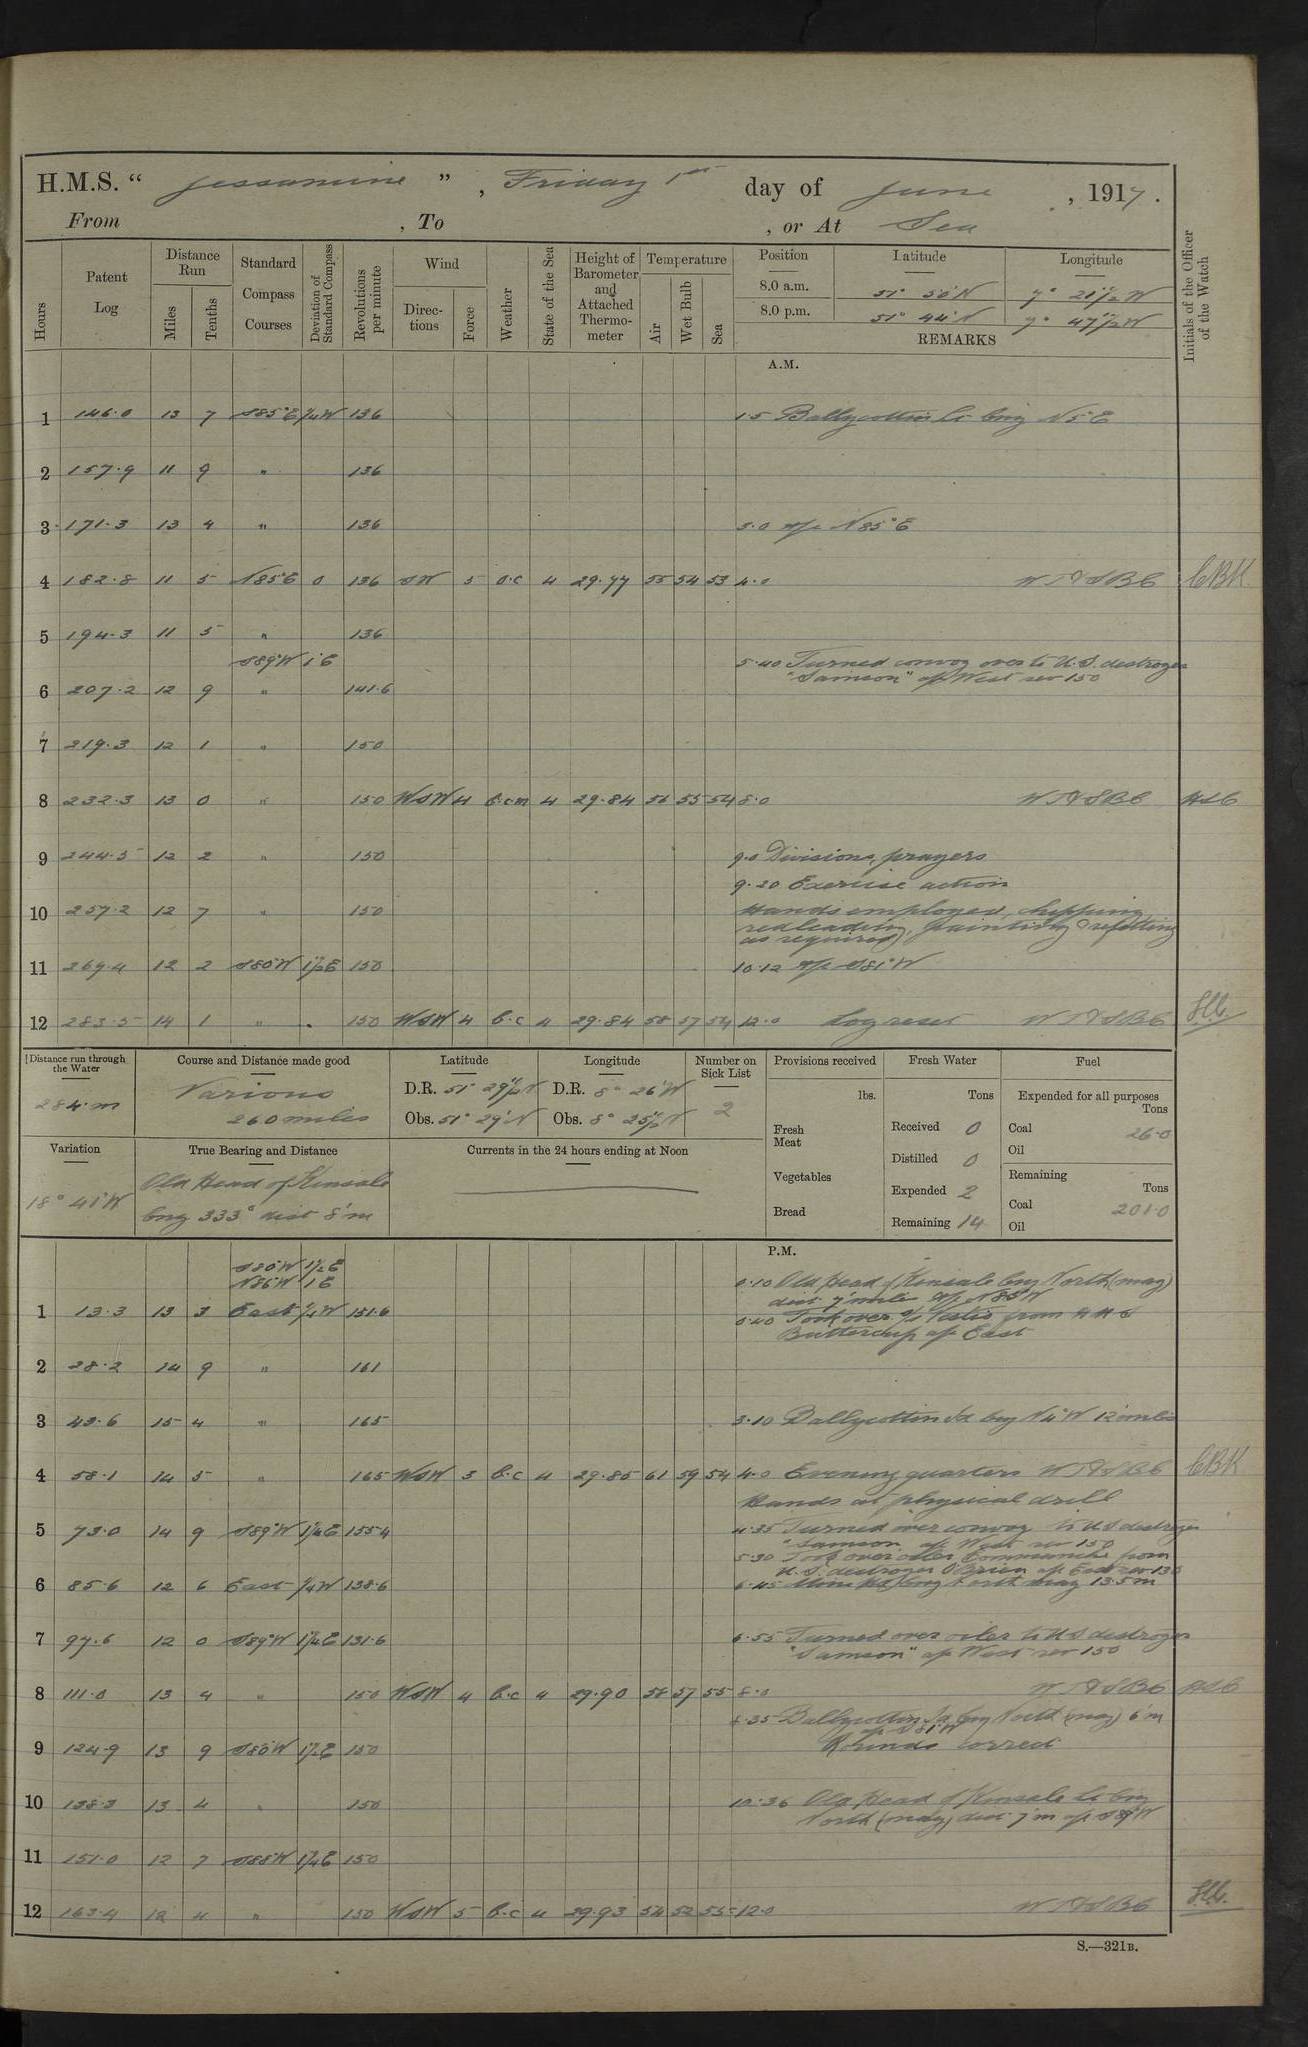 H.M.S. “ Jessamine ”, Friday 1st day of June, 1917.
From , To , or At Sea
Hours
Patent Log
Distance Run
Miles
Tenths
Standard Compass Courses
Deviation of Standard Compass
Revolutions per minute
Wind
Direc-tions
Force
Weather
State of the Sea
Height of Barometer and Attached Thermo-meter
Temperature
Air
Wet Bulb
Sea
Position Latitude Longitude
8.0 a.m. 51° 50'N 7° 21½'W
8.0 p.m. 51° 44'N 7° 47½'W
REMARKS
Initials of the Officer of the Watch
A.M.
1 146.0 13 7 S85°E ¼W 136 1.5 Ballycottin Lt brg N5°E
2 157.9 11 9 " 136
3 171.3 13 4 " 136 3.0 a/c N85°E
4 182.8 11 5 N85°E 0 136 SW 5 b.c 4 29.77 55 54 53 4.0 CBK
5 194.3 11 5 " 136
S89°W 1°E 5.40 Turned convoy over to U.S. destroyer
6 207.2 12 9 " 141.6 "Samson" a/c West rev 150
7 219.3 12 1 " 150
8 232.3 13 0 " 150 WSW 4 b.c.m 4 29.84 56 55 54 8.0
9 244.5 12 2 " 150 9.0 Divisions, prayers
9.20 Exercise action
10 257.2 12 7 " 150 Hands employed, chipping
redleading, painting & refitting
as required
11 269.4 12 2 S80°W 1½E 150 10.12 a/c S81°W
12 283.5 14 1 " " 150 WSW 4 b.c 4 29.84 58 57 54 12.0 Log reset
Distance run through the Water
284.m
Course and Distance made good
Various
260 miles
Latitude
D.R. 51° 29½'N
Obs. 51° 29'N
Longitude
D.R. 8° 26'W
Obs. 8° 25½'
Number on Sick List
2
Provisions received
lbs.
Fresh Meat
Vegetables
Bread
Fresh Water
Tons
Received 0
Distilled 0
Expended 2
Remaining 14
Fuel
Expended for all purposes
Tons
Coal 26.0
Oil
Remaining
Tons
Coal 201.0
Oil
Variation
18° 41'W
True Bearing and Distance
Old Head of Kinsale
brg 333° dist 8'm
Currents in the 24 hours ending at Noon
P.M.
S80°W 1½E 0.10 Old Head of Kinsale brg North (mag)
N86°W 1E dist 7'mile a/c N85°W
1 13.3 13 3 East ¼W 151.6 0.40 Took over from HMS
Buttercup a/c East
2 28.2 14 9 " 161
3 43.6 15 4 " 165 3.10 Ballycottin Id brg N4°W 12'miles
4 58.1 14 5 " 165 WSW 5 b.c 4 29.85 61 59 54 4.0 Evening quarters CBK
Hands at physical drill
5 73.0 14 9 S89°W 1¼E 155.4 4.35 Turned over convoy to US destroyer
"Samson" a/c West rev 150
5.30 Took over oiler from
6 85.6 12 6 East ¼W 138.6 U.S. destroyer O'Brien a/c East rev 130
6.45 Mine Hd brg North mag 13.5m
7 97.6 12 0 S89°W 1¼E 131.6 6.55 Turned over oiler to US destroyer
"Samson" a/c West rev 150
8 111.0 13 4 " 150 WSW 4 b.c 4 29.90 58 57 55 8.0
8.35 Ballycottin Id brg North (mag) 6'm
a/c S81°W
9 124.9 13 9 S80°W 1½E 150 Rounds correct
10 138.3 13 4 " 150 10.36 Old Head of Kinsale Lt brg
North (mag) dist 7'm a/c S89°W
11 151.0 12 7 S88°W 1¼E 150
12 163.4 12 4 " 150 WSW 5 b.c 4 29.93 54 52 53 12.0
S.—321B.